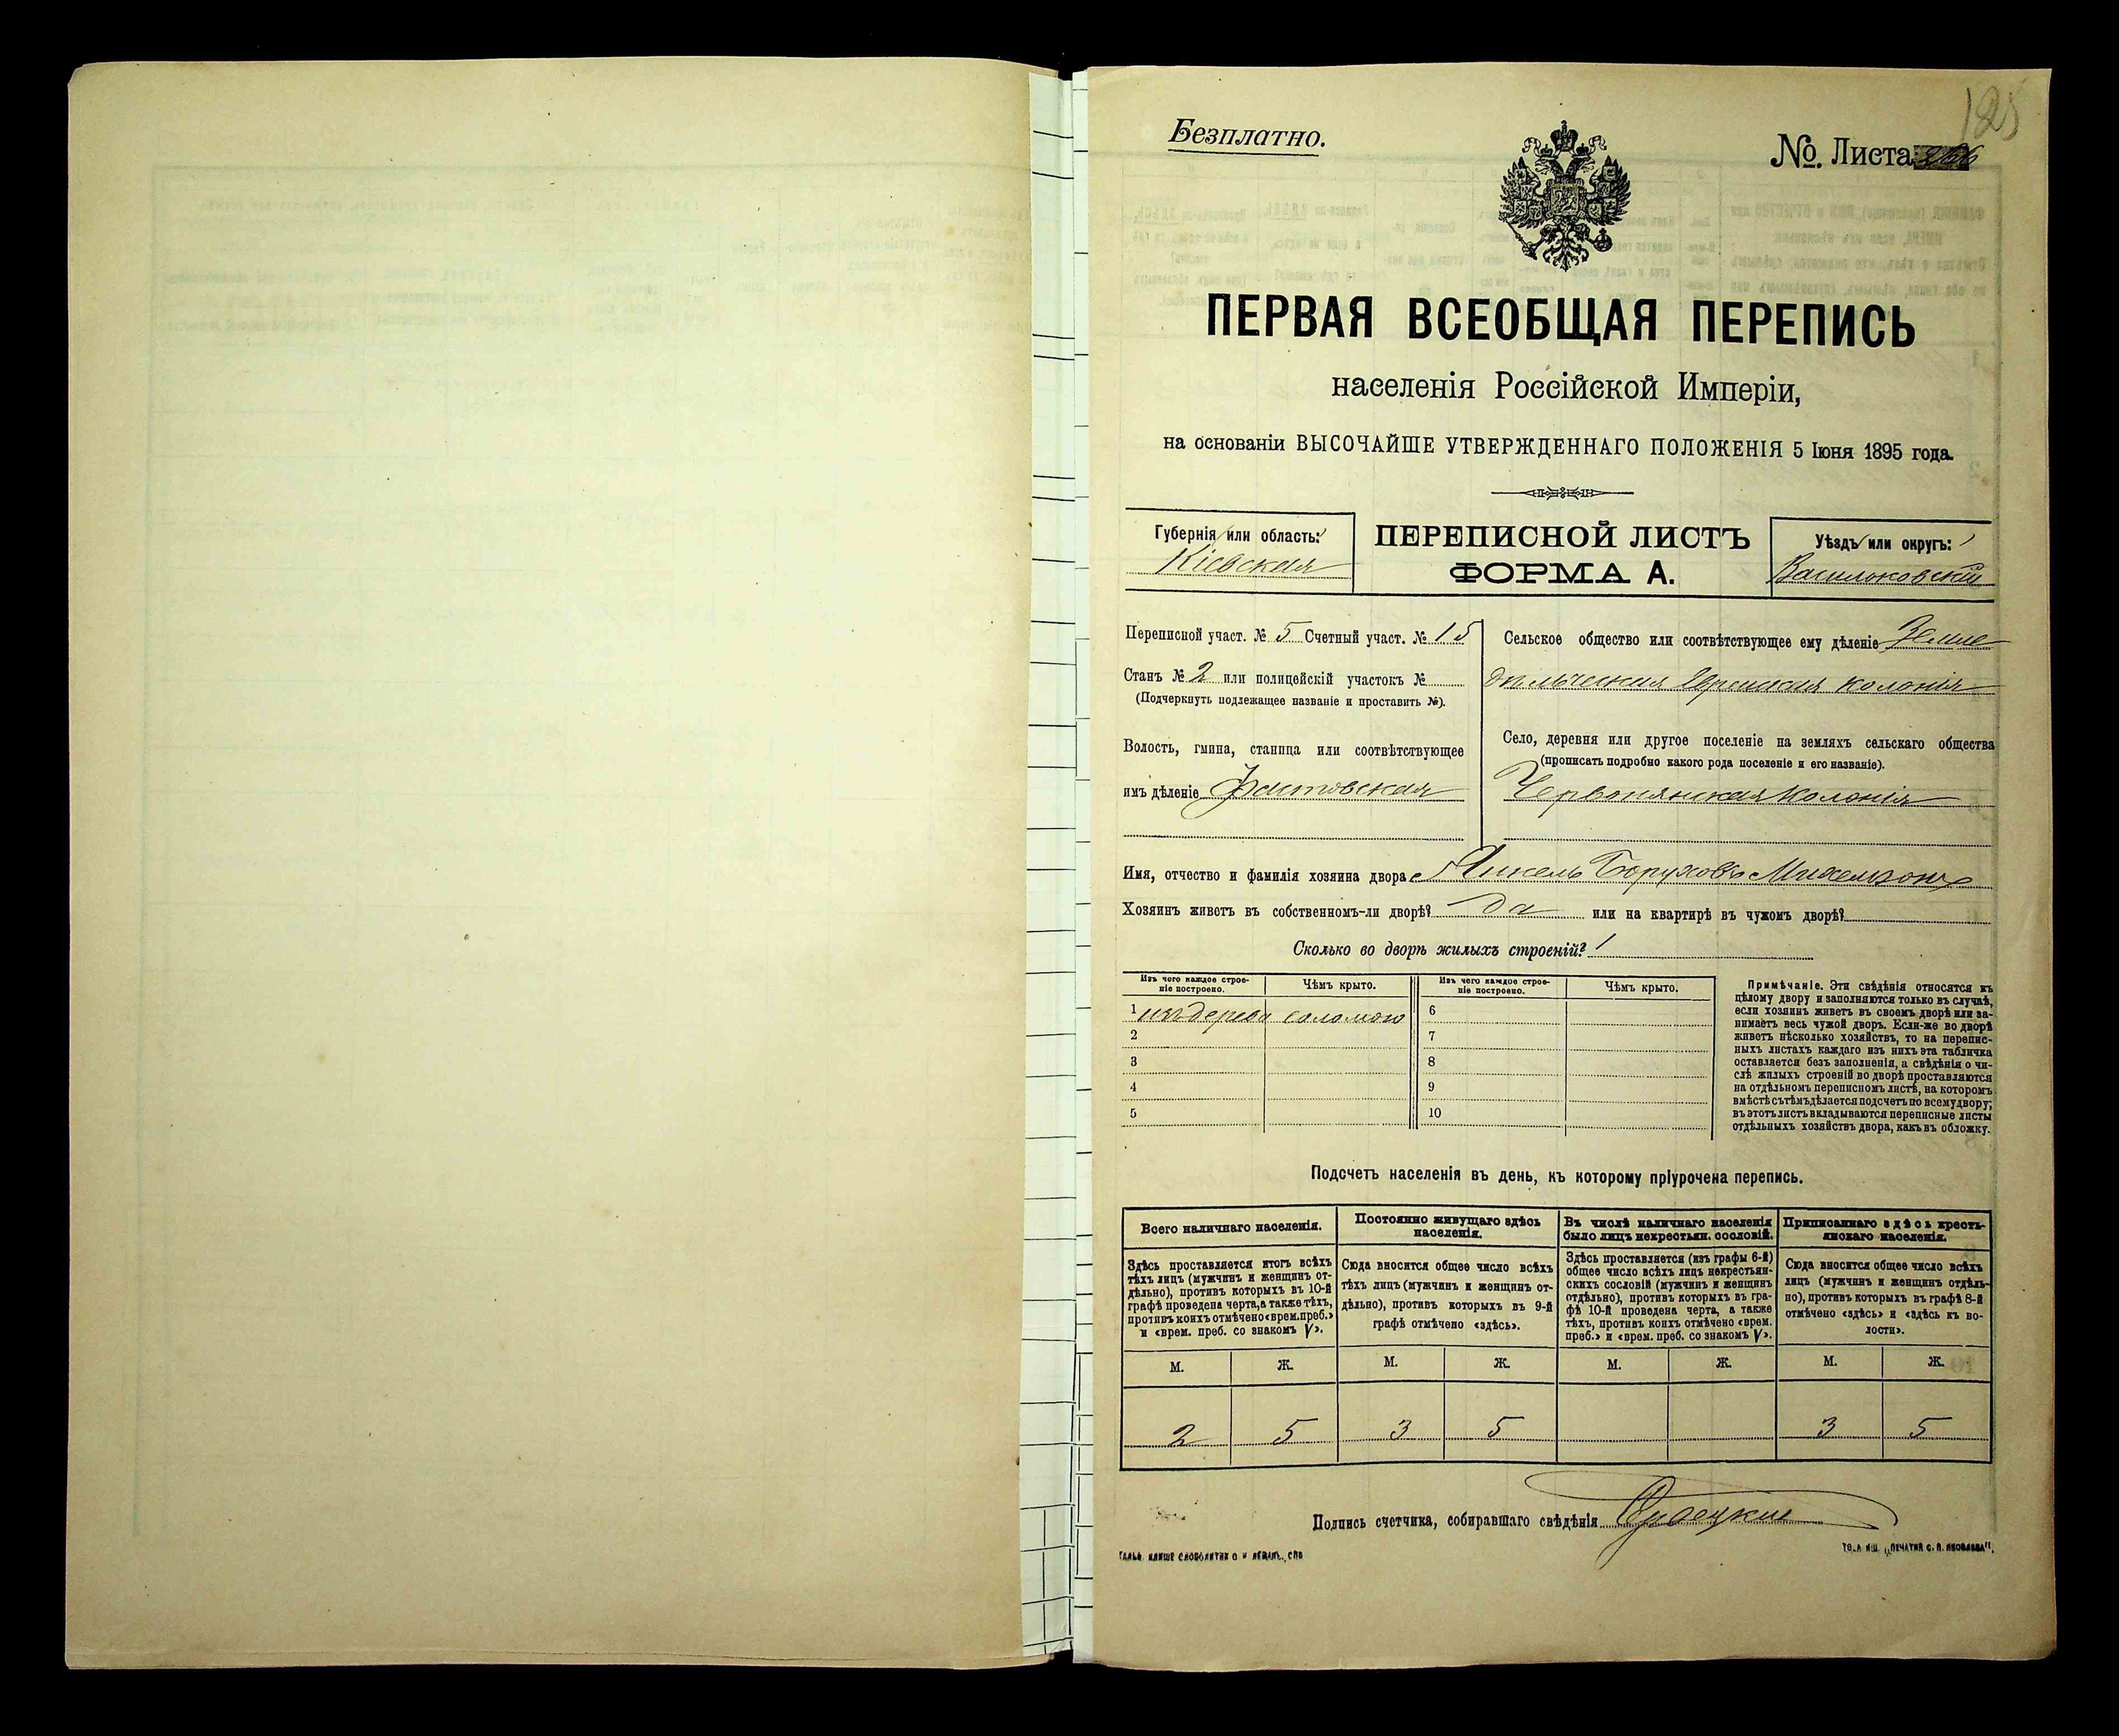 125
Безплатно.
№. Листа 266
ПЕРВАЯ ВСЕОБЩАЯ ПЕРЕПИСЬ
населенія Россійской Имперіи,
на основаніи ВЫСОЧАЙШЕ УТВЕРЖДЕННАГО ПОЛОЖЕНІЯ 5 Іюня 1895 года.
Губернія или область:
Кіевская
ПЕРЕПИСНОЙ ЛИСТЪ
ФОРМА А.
Уѣздъ или округъ:
Васильковскій
Переписной участ. № 5 Счетный участ. № 15
Станъ № 2 или полицейскій участокъ №
(Подчеркнуть подлежащее названіе и проставить №).
Волость, гмина, станица или соотвѣтствующее
имъ дѣленіе Фастовская
Сельское общество или соотвѣтствующее ему дѣленіе Земле
дѣльческая Еврейская колонія
Село, деревня или другое поселеніе на земляхъ сельскаго общества
(прописать подробно какого рода поселеніе и его названіе).
Червонянская Колонія
Имя, отчество и фамилія хозяина двора Янкель Боруховъ Михельзонъ
Хозяинъ живетъ въ собственномъ-ли дворѣ? да или на квартирѣ въ чужомъ дворѣ?
Сколько во дворѣ жилыхъ строеній? 1
Изъ чего каждое строе-
ніе построено.
Чѣмъ крыто.
1 изъ дерева соломою
2
3
4
5
Изъ чего каждое строе-
ніе построено.
Чѣмъ крыто.
6
7
8
9
10
Примѣчаніе. Эти свѣдѣнія относятся къ
цѣлому двору и заполняются только въ случаѣ,
если хозяинъ живетъ въ своемъ дворѣ или за-
нимаетъ весь чужой дворъ. Если-же во дворѣ
живетъ нѣсколько хозяйствъ, то на перепис-
ныхъ листахъ каждаго изъ нихъ эта табличка
оставляется безъ заполненія, а свѣдѣнія о чи-
слѣ жилыхъ строеній во дворѣ проставляются
на отдѣльномъ переписномъ листѣ, на которомъ
вмѣстѣ съ тѣмъ дѣлается подсчетъ по всему двору;
въ этотъ листъ вкладываются переписные листы
отдѣльныхъ хозяйствъ двора, какъ въ обложку.
Подсчетъ населенія въ день, къ которому пріурочена перепись.
Всего наличнаго населенія.
Здѣсь проставляется итогъ всѣхъ
тѣхъ лицъ (мужчинъ и женщинъ от-
дѣльно), противъ которыхъ въ 10-й
графѣ проведена черта, а также тѣхъ,
противъ коихъ отмѣчено «врем. преб.»
и «врем. преб. со знакомъ V».
М. Ж.
2 5
Постоянно живущаго здѣсь
населенія.
Сюда вносится общее число всѣхъ
тѣхъ лицъ (мужчинъ и женщинъ от-
дѣльно), противъ которыхъ въ 9-й
графѣ отмѣчено «здѣсь».
М. Ж.
3 5
Въ числѣ наличнаго населенія
было лицъ некрестьян. сословій.
Здѣсь проставляется (изъ графы 6-й)
общее число всѣхъ лицъ некрестьян-
скихъ сословій (мужчинъ и женщинъ
отдѣльно), противъ которыхъ въ гра-
фѣ 10-й проведена черта, а также
тѣхъ, противъ коихъ отмѣчено «врем.
преб.» и «врем. преб. со знакомъ V».
М. Ж.
Приписаннаго здѣсь кресть-
янскаго населенія.
Сюда вносится общее число всѣхъ
лицъ (мужчинъ и женщинъ отдѣль-
но), противъ которыхъ въ графѣ 8-й
отмѣчено «здѣсь» и «здѣсь къ во-
лости».
М. Ж.
3 5
Подпись счетчика, собиравшаго свѣдѣнія